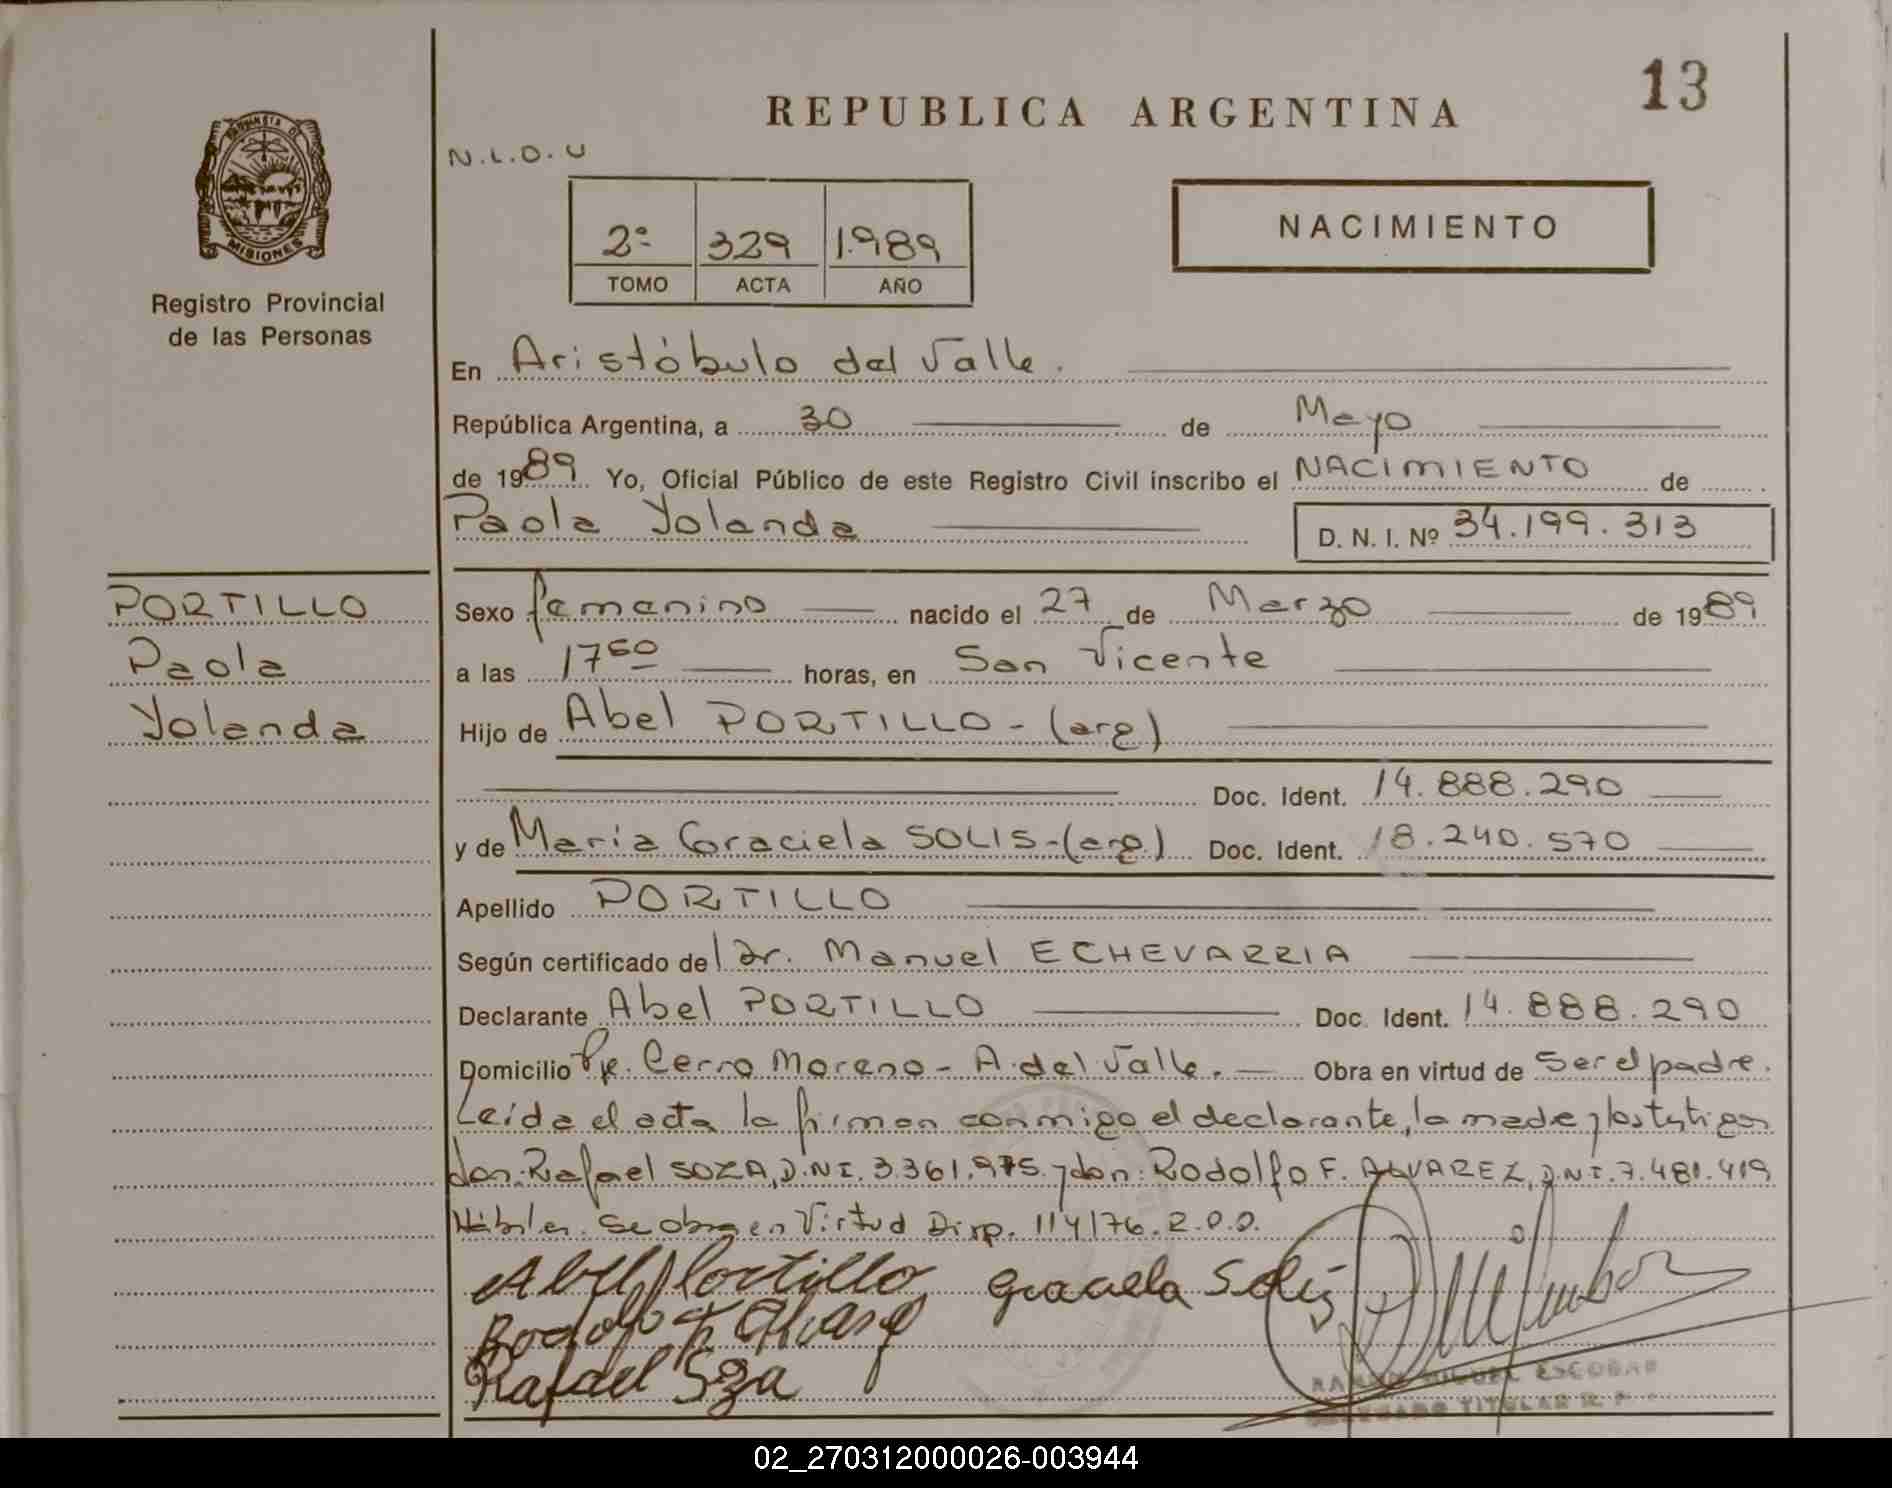 13
REPUBLICA ARGENTINA
N.L.O.U
PROVINCIA DE
MISIONES
Registro Provincial
de las Personas
2º 329 1.989
TOMO ACTA AÑO
NACIMIENTO
En Aristóbulo del Valle.
República Argentina, a 30 de Mayo
de 1989 Yo, Oficial Público de este Registro Civil inscribo el NACIMIENTO de
Paola Yolanda D. N. I. Nº 34.199.313
PORTILLO
Paola
Yolanda
Sexo femenino nacido el 27 de Marzo de 1989
a las 17 horas, en San Vicente
Hijo de Abel PORTILLO - (arg)
Doc. Ident. 14.888.290
y de María Graciela SOLIS - (arg) Doc. Ident. 18.240.570
Apellido PORTILLO
Según certificado del Dr. Manuel ECHEVARRIA
Declarante Abel PORTILLO Doc. Ident. 14.888.290
Domicilio Pje. Cerro Moreno - A. del Valle. Obra en virtud de ser el padre.
Leída el acta la firman conmigo el declarante, la madre y los testigos
don: Rafael SOZA, D.N.I. 3.361.975. y don: Rodolfo F. ALVAREZ, D.N.I. 7.481.419
Hábiles. Se obra en Virtud Disp. 114/76.
Abel Portillo Graciela Solis
Rodolfo F. Alvarez
Rafael Soza
RAMON MIGUEL ESCOBAR
DELEGADO TITULAR R. P.
02_270312000026-003944